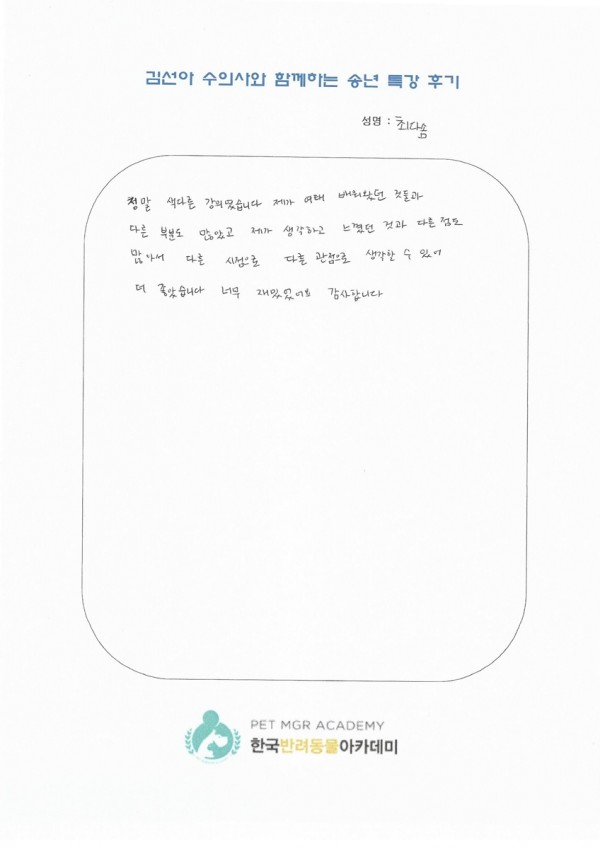 김선아 수의사와 함께하는 송년 특강 후기
성명 : 최다솜
정말 색다른 강의였습니다 제가 여태 배워왔던 것들과
다른 부분도 많았고 제가 생각하고 느꼈던 것과 다른점도
많아서 다른 시점으로 다른 관점으로 생각할 수 있어
더 좋았습니다 너무 재밌었어요 감사합니다
PET MGR ACADEMY
한국반려동물아카데미